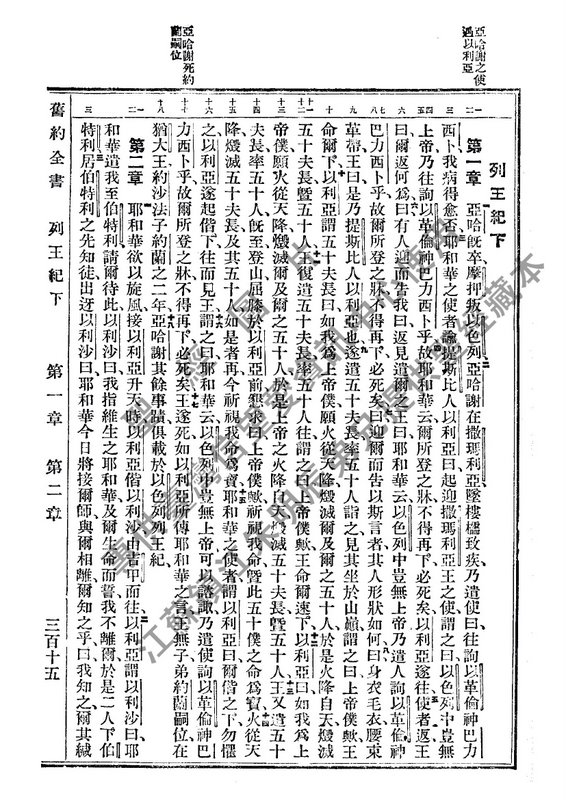 亞哈謝之使
遇以利亞
亞哈謝死約
蘭嗣位
列王紀下
第一章 亞哈旣卒摩押叛以色列亞哈謝在撒瑪利亞墜樓櫺致疾乃遣使曰往詢以革倫神巴力
西卜我病得愈否耶和華之使者諭提斯比人以利亞曰起迎撒瑪利亞王之使謂之曰以色列中豈無
上帝乃往詢以革倫神巴力西卜乎故耶和華云爾所登之牀不得再下必死矣以利亞遂往使者返王
曰爾返何爲曰有人迎而告我曰返見遣爾之王曰耶和華云以色列中豈無上帝乃遣人詢以革倫神
巴力西卜乎故爾所登之牀不得再下必死矣曰迎爾而告以斯言者其人形狀如何曰身衣毛衣腰束
革帶王曰是乃提斯比人以利亞也遂遣五十夫長率五十人詣之見其坐於山巔謂之曰上帝僕歟王
命爾下以利亞謂五十夫長曰如我爲上帝僕願火從天降燬滅爾及爾之五十人於是火降自天燬滅
五十夫長曁五十人王復遣五十夫長率五十人往謂之曰上帝僕歟王命爾速下以利亞曰如我爲上
帝僕願火從天降燬滅爾及爾之五十人於是上帝之火降自天燬滅五十夫長曁五十人王又遣五十
夫長率五十人旣至登山屈膝於以利亞前懇求曰上帝僕歟祈視我命曁此五十僕之命爲寶火從天
降燬滅五十夫長及其五十人如是者再今祈視我命爲寶耶和華之使者謂以利亞曰爾偕之下勿懼
之以利亞遂起偕下往而見王謂之曰耶和華云以色列中豈無上帝可以諮諏乃遣使詢以革倫神巴
力西卜乎故爾所登之牀不得再下必死矣王遂死如以利亞所傳耶和華之言王無子弟約蘭嗣位在
猶大王約沙法子約蘭之二年亞哈謝其餘事蹟俱載於以色列列王紀
第二章 耶和華欲以旋風接以利亞升天時以利亞偕以利沙由吉甲而往以利亞謂以利沙曰耶
和華遣我至伯特利請爾待此以利沙曰我指維生之耶和華及爾生命而誓我不離爾於是二人下伯
特利居伯特利之先知徒出迓以利沙曰耶和華今日將接爾師與爾相離爾知之乎曰我知之爾其緘
舊約全書 列王紀下 第一章 第二章 三百十五